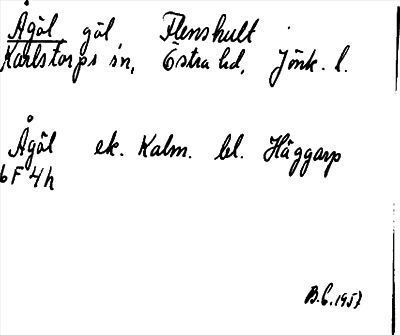 Ågöl göl Flenshult
Karlstorps sn, Östra hd, Jönk. l.
Ågöl ek. Kalm. bl. Häggarp
6F 4h
B.C. 1957